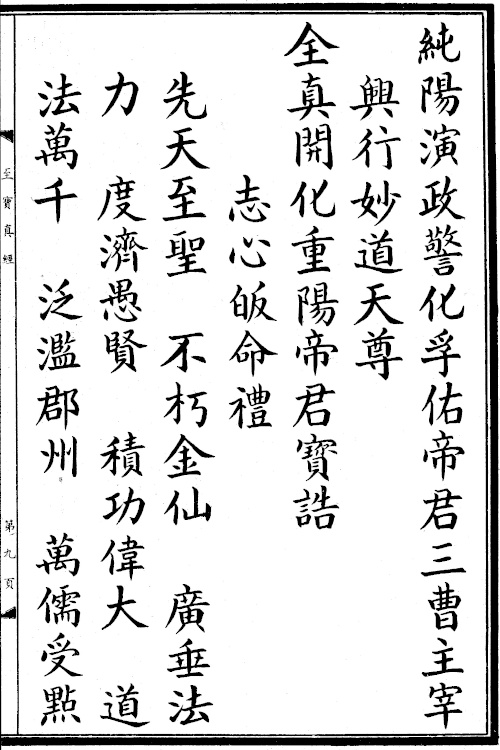 純陽演政警化孚佑帝君三曹主宰
興行妙道天尊
全真開化重陽帝君寶誥
志心皈命禮
先天至聖　不朽金仙　廣垂法
力　度濟愚賢　積功偉大　道
法萬千　泛濫郡州　萬儒受點
至寶真經
第九頁